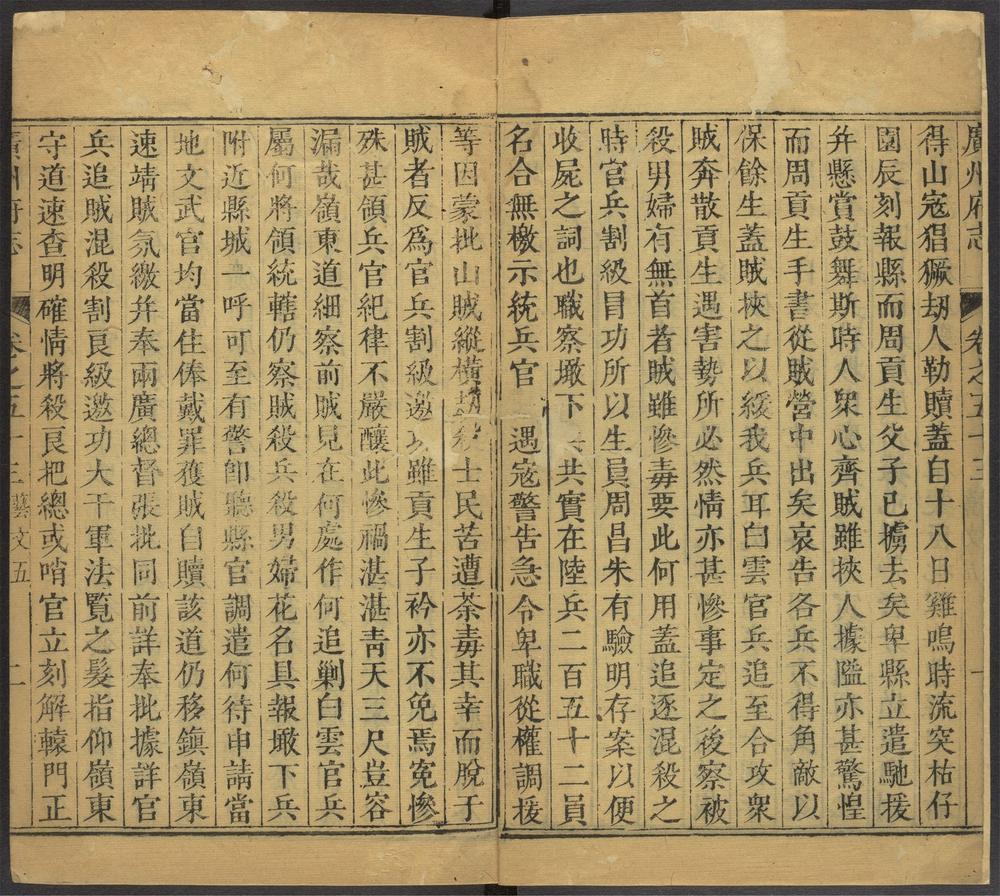 廣州府志 卷之五十三
得山寇猖獗刼人勒贖蓋自十八日雞鳴時流突枯仔
園辰刻報縣而周貢生父子已擄去矣卑縣立遣馳援
幷懸賞鼓舞斯時人衆心齊賊雖挾人據隘亦甚驚惶
而周貢生手書從賊營中出矣哀告各兵不得角敵以
保餘生蓋賊挾之以緩我兵耳白雲官兵追至合攻衆
賊奔散貢生遇害勢所必然情亦甚慘事定之後察被
殺男婦有無首者賊雖慘毒要此何用蓋追逐混殺之
時官兵割級冒功所以生員周昌朱有驗明存案以便
收屍之詞也職察墩下 兵共實在陸兵二百五十二員
名合無檄示統兵官 遇寇警告急令卑職從權調援
等因蒙批山賊縱橫刼殺士民苦遭荼毒其幸而脫于
賊者反爲官兵割級邀功雖貢生子衿亦不免焉寃慘
殊甚領兵官紀律不嚴釀此慘禍湛湛靑天三尺豈容
漏哉嶺東道細察前賊見在何處作何追剿白雲官兵
屬何將領統轄仍察賊殺兵殺男婦花名具報墩下兵
附近縣城一呼可至有警卽聽縣官調遣何待申請當
地文武官均當住俸戴罪獲賊自贖該道仍移鎭嶺東
速靖賊氛繳幷奉兩廣總督張批同前詳奉批據詳官
兵追賊混殺割良級邀功大干軍法覽之髮指仰嶺東
守道速查明確情將殺良把總或哨官立刻解轅門正
廣州府志 卷之五十三 藝文五 二